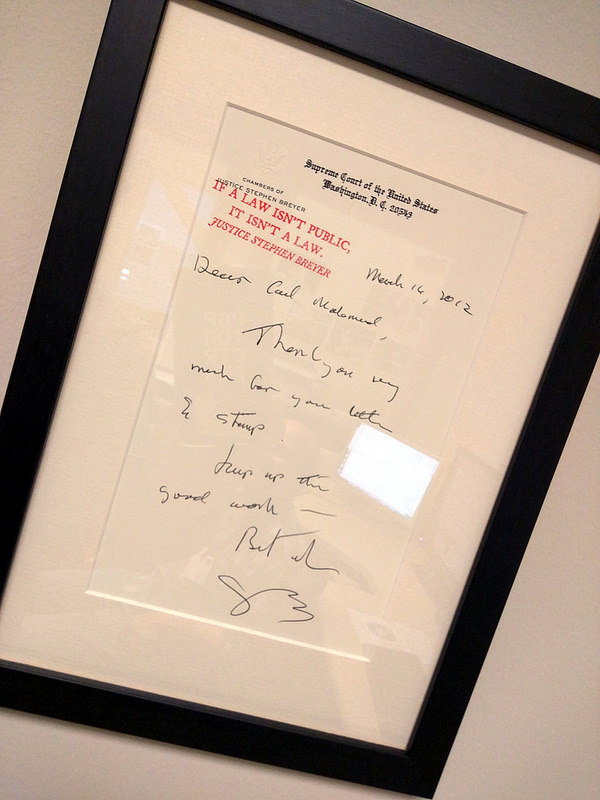 Supreme Court of the United States
Washington, D. C. 20543
CHAMBERS OF
JUSTICE STEPHEN BREYER
IF A LAW ISN'T PUBLIC,
IT ISN'T A LAW.
JUSTICE STEPHEN BREYER
March 14, 2012
Dear Carl Malamud,
Thank you very
much for your letter
& stamp.
Keep up the
good work —
Best wishes
SB